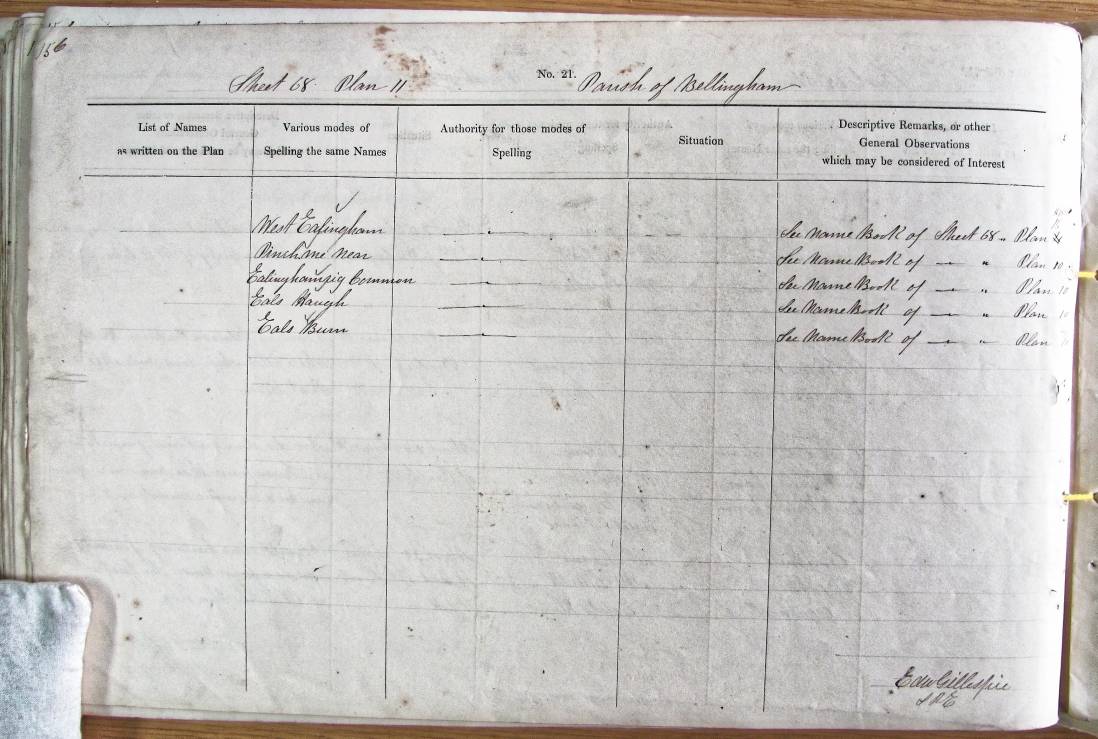 156
No. 21.
Sheet 68 Plan 11 Parish of Bellingham
List of Names as written on the Plan
Various modes of Spelling the same Names
Authority for those modes of Spelling
Situation
Descriptive Remarks, or other General Observations which may be considered of Interest
West Ealingham See Name Book of Sheet 68 " Plan
Pinch me near See Name Book of — " Plan 10
Ealinghamrig Common See Name Book of — " Plan 10
Eals Haugh See Name Book of — " Plan 10
Eals Burn See Name Book of — " Plan
Edw Gillespie